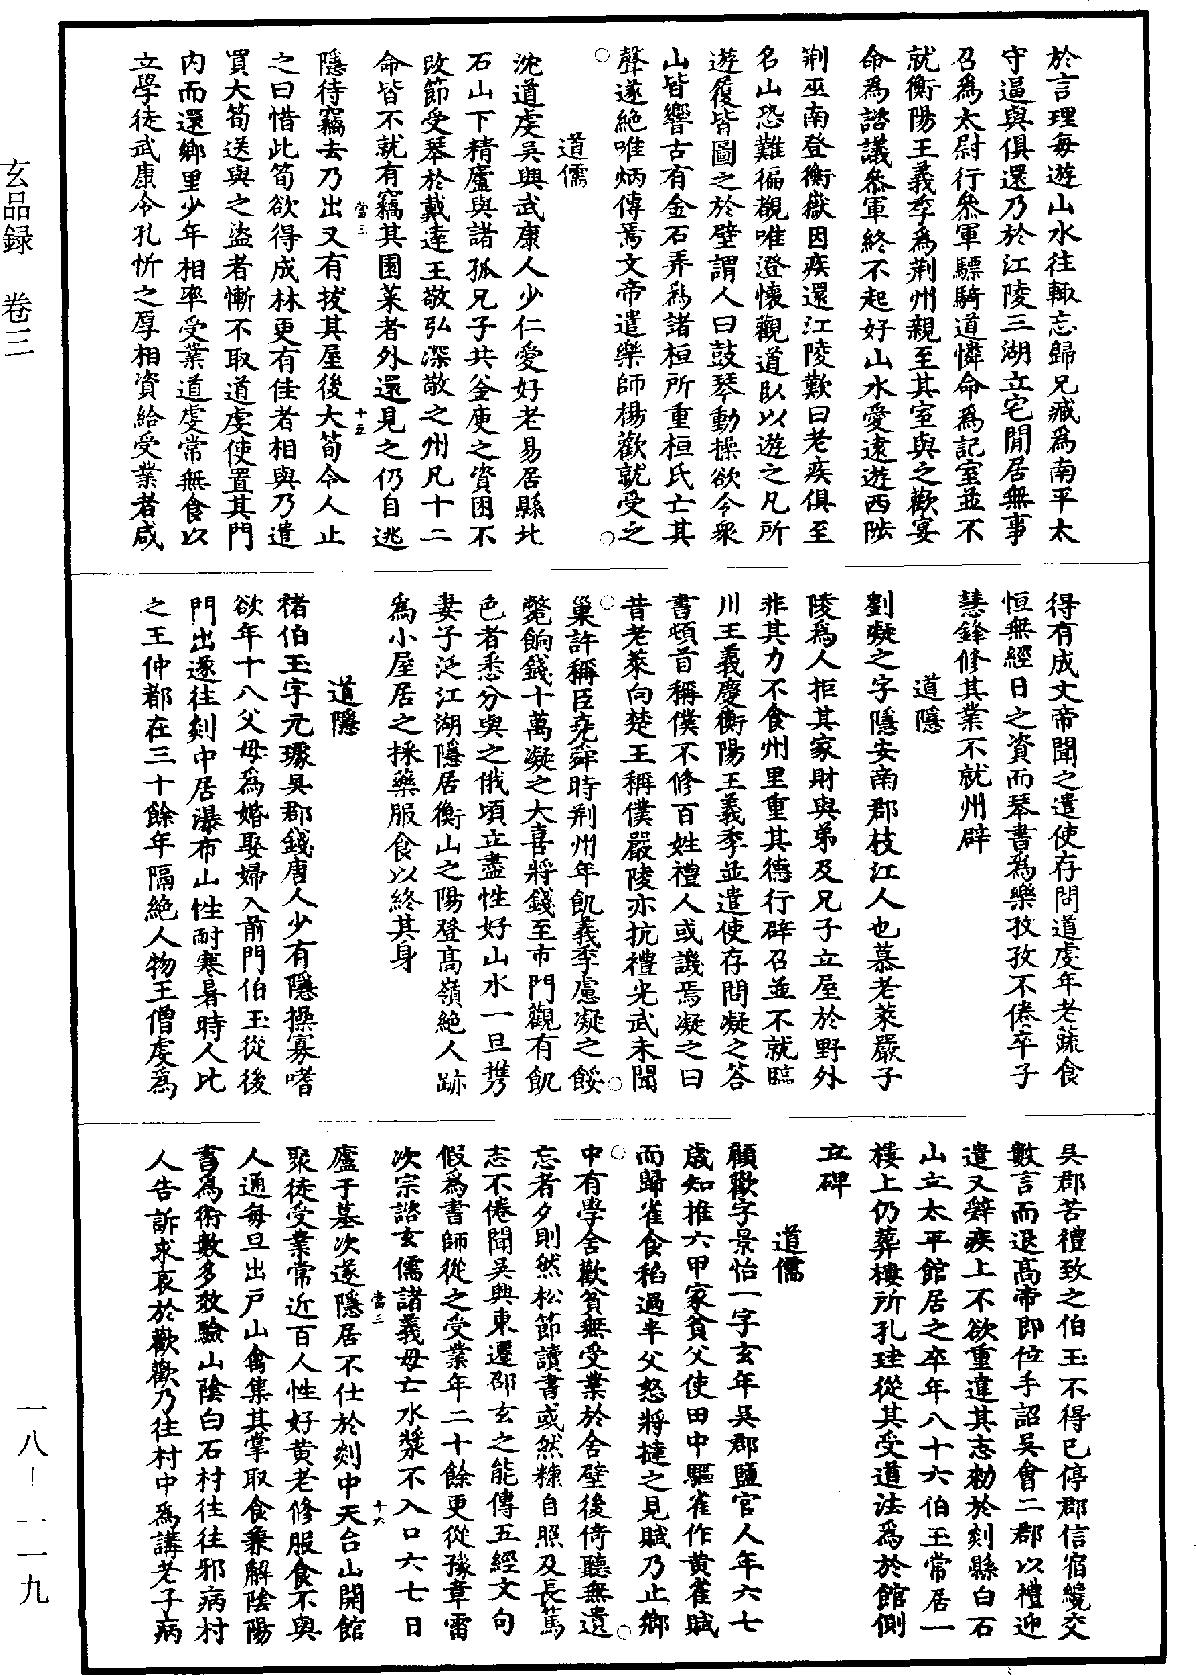 於言理每遊山水往輒忘歸兄臧爲南平太
守逼與俱還乃於江陵三湖立宅閒居無事
召爲太尉行參軍驃騎道憐命爲記室並不
就衡陽王義季爲荆州親至其室與之歡宴
命爲諮議參軍終不起好山水愛遠遊西陟
荆巫南登衡嶽因疾還江陵歎曰老疾俱至
名山恐難徧覩唯澄懷觀道卧以遊之凡所
遊履皆圖之於壁謂人曰鼓琴動操欲令衆
山皆響古有金石弄爲諸桓所重桓氏亡其
聲遂絶唯炳傳焉文帝遣樂師楊歡就受之
道儒
沈道虔吳興武康人少仁愛好老易居縣北
石山下精廬與諸孤兄子共釜庾之資困不
改節受琴於戴逵王敬弘深敬之州凡十二
命皆不就有竊其園菜者外還見之仍自逃
隱待竊去乃出又有拔其屋後大筍令人止
之曰惜此筍欲得成林更有佳者相與乃遣
買大筍送與之盜者慚不取道虔使置其門
内而還鄉里少年相率受業道虔常無食以
立學徒武康令孔忻之厚相資給受業者咸
得有成文帝聞之遣使存問道虔年老蔬食
恒無經日之資而琴書爲樂孜孜不倦卒子
慧鋒修其業不就州辟
道隱
劉凝之字隱安南郡枝江人也慕老萊嚴子
陵爲人拒其家財與弟及兄子立屋於野外
非其力不食州里重其德行辟召並不就臨
川王義慶衡陽王義季並遣使存問凝之答
書頓首稱僕不修百姓禮人或譏焉凝之曰
昔老萊向楚王稱僕嚴陵亦抗禮光武未聞
巢許稱臣堯舜時荆州年飢義季慮凝之餒
斃餉錢十萬凝之大喜將錢至市門觀有飢
色者悉分與之俄頃立盡性好山水一旦携
妻子泛江湖隱居衡山之陽登高嶺絶人跡
爲小屋居之採藥服食以終其身
道隱
褚伯玉字元璩吳郡錢唐人少有隱操寡嗜
欲年十八父母爲婚娶婦入前門伯玉從後
門出遂往剡中居瀑布山性耐寒暑時人比
之王仲都在三十餘年隔絶人物王僧虔爲
吳郡苦禮致之伯玉不得已停郡信宿纔交
數言而退高帝即位手詔吳會二郡以禮迎
遣又辭疾上不欲重違其志勑於剡縣白石
山立太平館居之卒年八十六伯玉常居一
樓上仍葬樓所孔珪從其受道法爲於館側
立碑
道儒
顧歡字景怡一字玄年吳郡鹽官人年六七
歲知推六甲家貧父使田中驅雀作黄雀賦
而歸雀食稻過半父怒將撻之見賦乃止鄉
中有學舍歡貧無受業於舍壁後倚聽無遺
忘者夕則然松節讀書或然糠自照及長篤
志不倦聞吳興東遷邵玄之能傳五經文句
假爲書師從之受業年二十餘更從豫章雷
次宗諮玄儒諸義母亡水漿不入口六七日
廬于墓次遂隱居不仕於剡中天台山開館
聚徒受業常近百人性好黄老修服食不與
人通每旦出戶山禽集其掌取食兼解陰陽
書爲術數多效驗山陰白石村往往邪病村
人告訴求哀於歡歡乃往村中爲講老子病
當三
十五
當三
十六
玄品録　卷三
一八—一一九